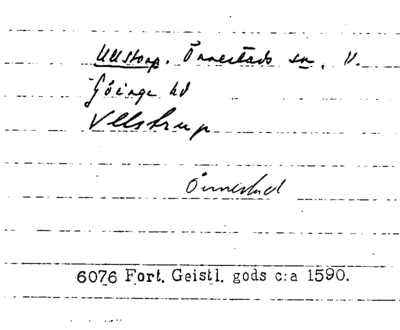 Ullstorp. Önnestads sn, V.
Göinge hd
Vllstrup
Önnestad
6076 Fort. Geistl. gods c:a 1590.